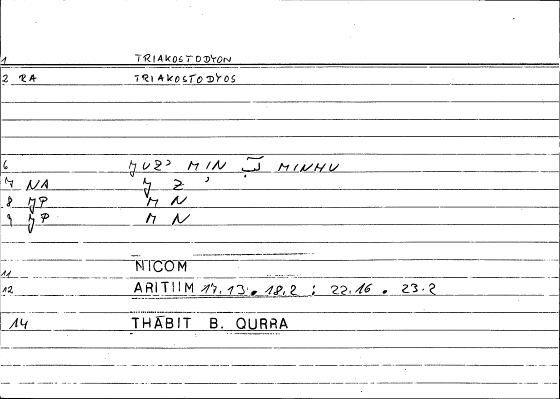 1 TRIAKOSTODYON
2 RA TRIAKOSTODYOS
6 JUZʾ MIN لب MINHU
7 NA J Z ʾ
8 JP M N
9 JP M N
11 NICOM
12 ARITHM 17.13 . 18.2 ; 22.16 . 23.2
14 THĀBIT B. QURRA